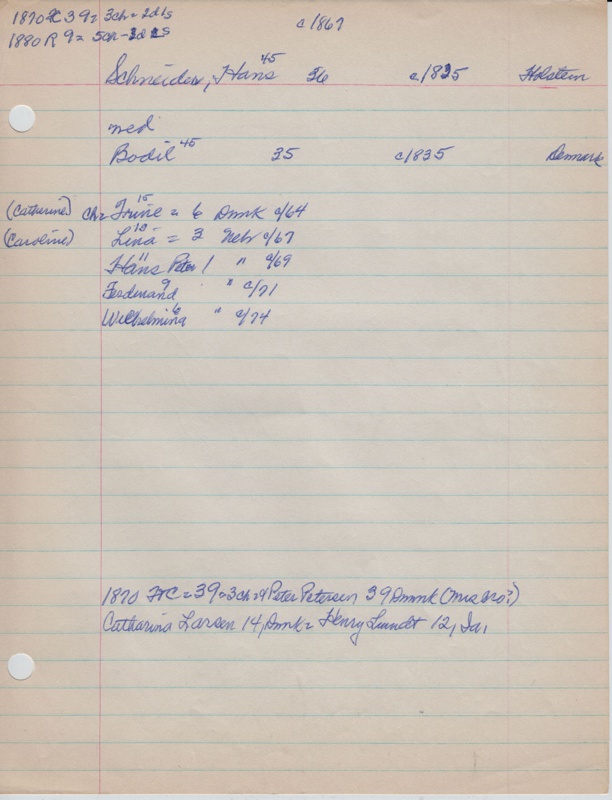 1870 FC 39 = 3ch = 2d 1s
1880 R 9 = 5ch - 3d 2s
c 1867
Schneider, Hans 45 36 c/1835 Holstein
med
Bodil 45 35 c/1835 Denmark
(Catharine) ch = Trine 15 = 6 Dmnk c/64
(Caroline) Lena 10 = 3 Nebr c/67
Hans Peter 11 1 " c/69
Ferdinand 9 " c/71
Wilhelmina 6 " c/74
1870 FC = 39 = 3ch = Peter Petersen 39 Dmnk
Catharina Larsen 14, Dmk = Henry Lundt 12, Ia,